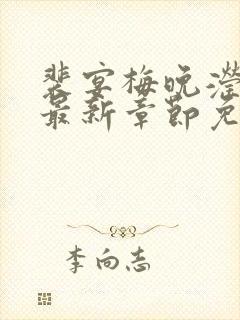 裴宴梅晚滢
最新章节免
李向志